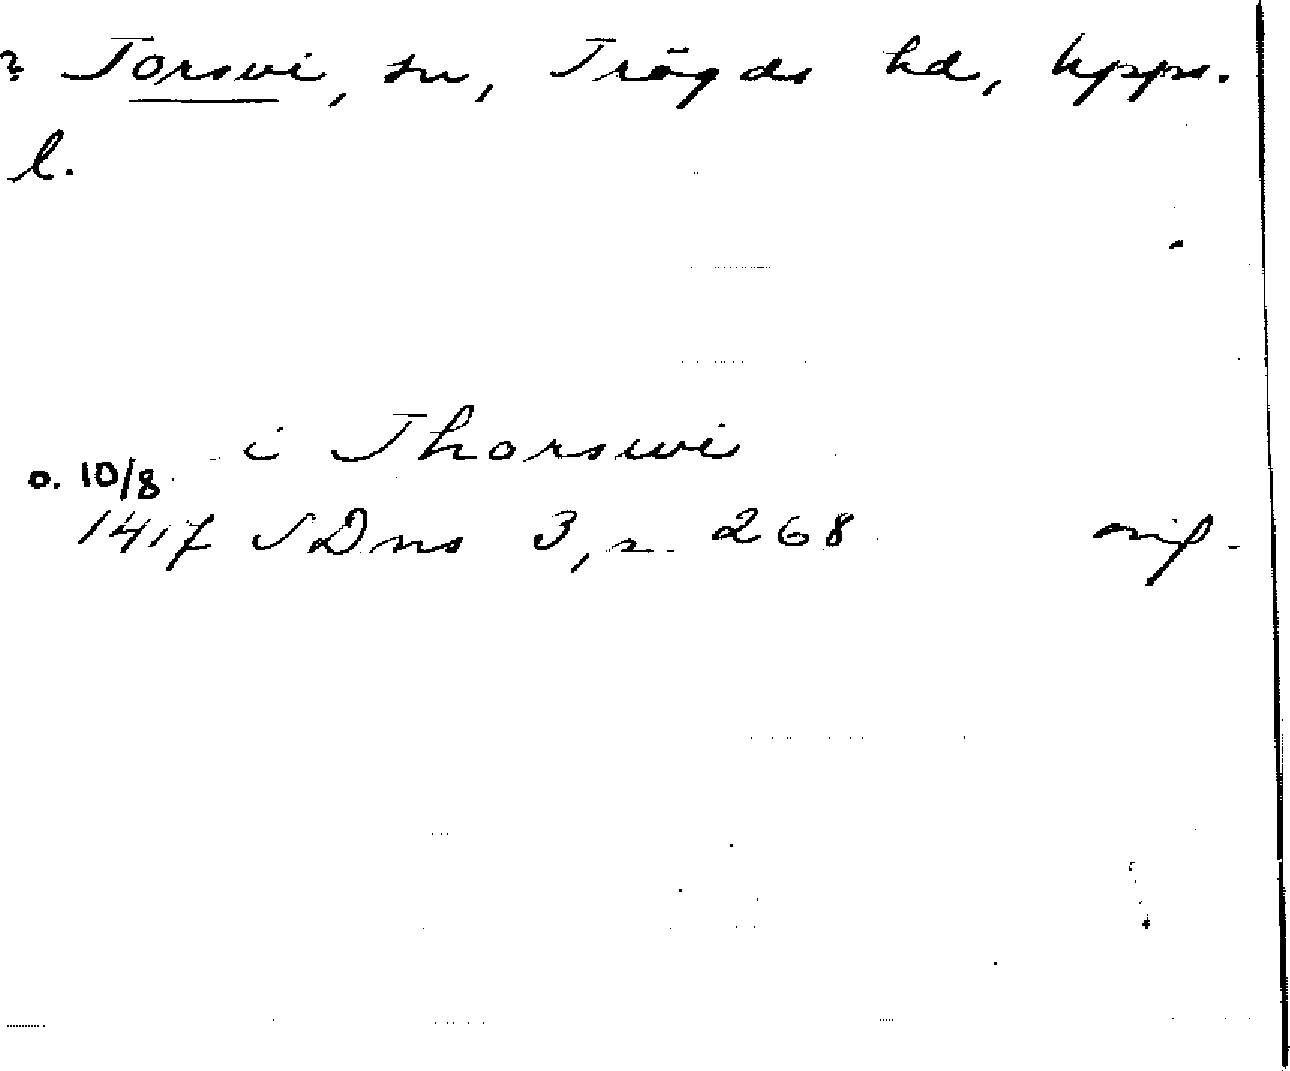 ? Torsvi, sn, Trögds hd, Upps.
l.
i Thorswi
o. 10/8
1417 SDns 3, s. 268 orig.